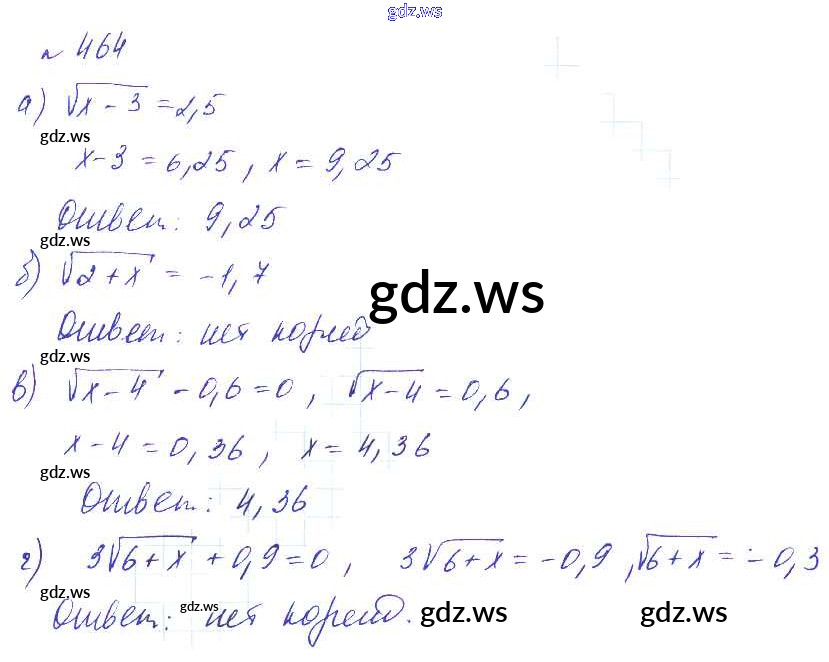 gdz.ws
№ 464
а) √x – 3 = 2,5
gdz.ws
x – 3 = 6,25, x = 9,25
Ответ: 9,25
gdz.ws
б) √2 + x = –1,7
gdz.ws
Ответ: нет корней
gdz.ws
в) √x – 4 – 0,6 = 0, √x – 4 = 0,6,
x – 4 = 0,36, x = 4,36
gdz.ws
Ответ: 4,36
г) 3√6 + x + 0,9 = 0, 3√6 + x = –0,9, √6 + x = –0,3
gdz.ws
Ответ: нет корней.
gdz.ws
gdz.ws
gdz.ws